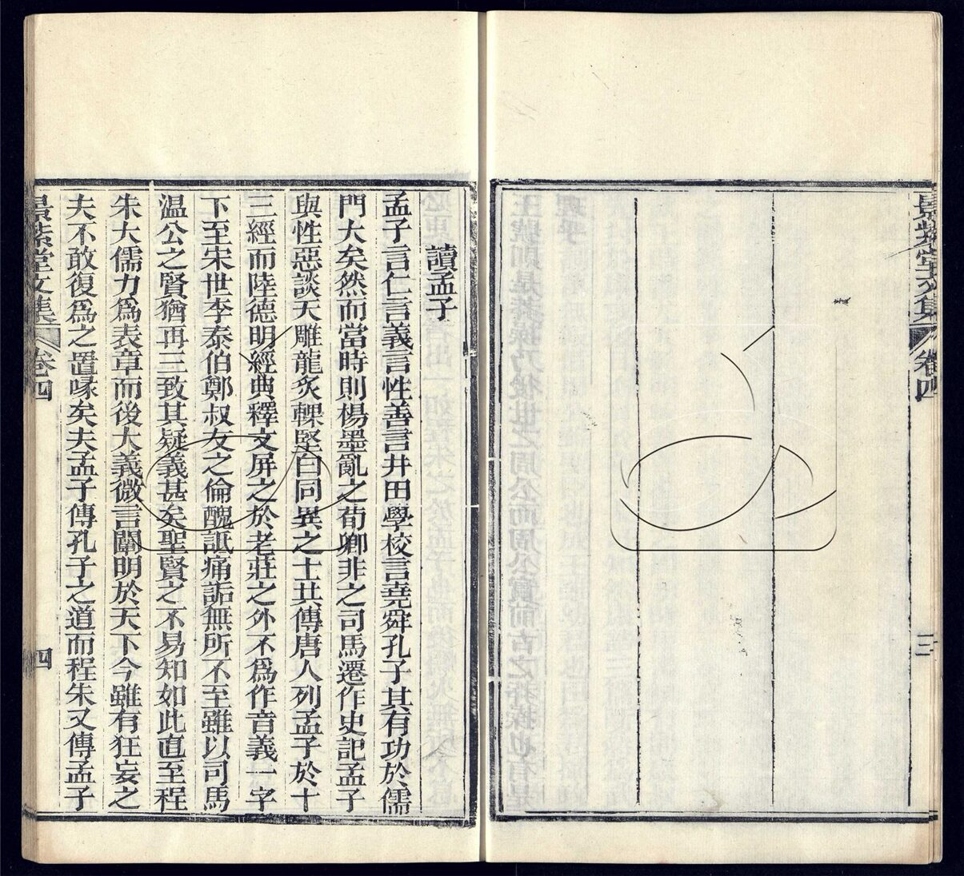 景紫堂文集
卷四
三
讀孟子
孟子言仁言義言性善言井田學校言堯舜孔子其有功於儒
門大矣然而當時則楊墨亂之荀卿非之司馬遷作史記孟子
與性惡談天雕龍炙輠堅白同異之士共傳唐人列孟子於十
三經而陸德明經典釋文屏之於老莊之外不爲作音義一字
下至宋世李泰伯鄭叔友之倫醜詆痛詬無所不至雖以司馬
溫公之賢猶再三致其疑義甚矣聖賢之不易知如此直至程
朱大儒力爲表章而後大義微言闡明於天下今雖有狂妄之
夫不敢復爲之置喙矣夫孟子傳孔子之道而程朱又傳孟子
景紫堂文集
卷四
四